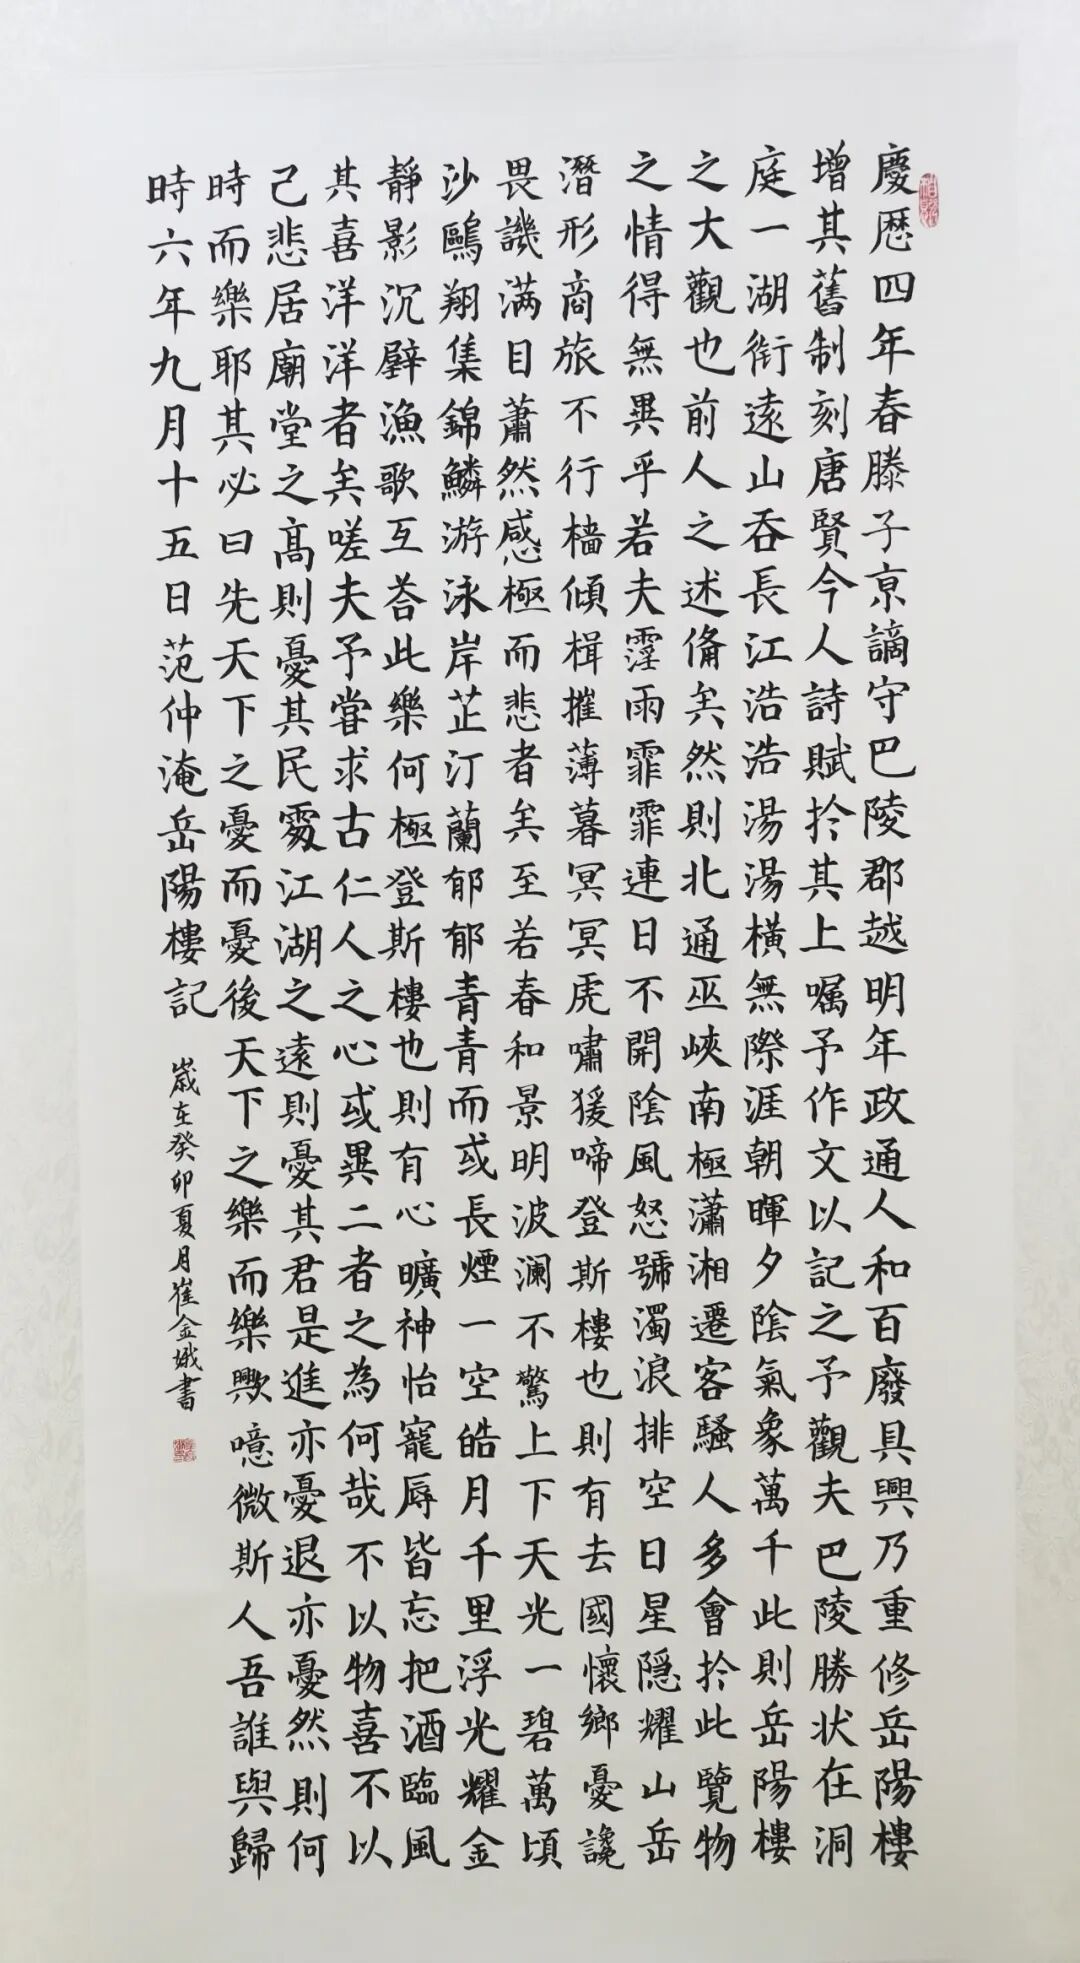 慶厯四年春滕子亰謫守巴陵郡越明年政通人和百廢具興乃重修岳陽樓
增其舊制刻唐賢今人詩賦扵其上嘱予作文以記之予觀夫巴陵勝状在洞
庭一湖銜遠山吞長江浩浩湯湯橫無際涯朝暉夕陰氣象萬千此則岳陽樓
之大觀也前人之述俻矣然則北通巫峽南極瀟湘遷客騷人多會扵此覽物
之情得無異乎若夫霪雨霏霏連日不開陰風怒號濁浪排空日星隐耀山岳
潛形商旅不行檣傾楫摧薄暮冥冥虎嘯猨啼登斯樓也則有去國懷鄉憂讒
畏譏满目蕭然感極而悲者矣至若春和景明波澜不驚上下天光一碧萬頃
沙鷗翔集錦鱗游泳岸芷汀蘭郁郁青青而或長煙一空皓月千里浮光耀金
靜影沉壁漁歌互荅此樂何極登斯樓也則有心曠神怡寵辱皆忘把酒臨風
其喜洋洋者矣嗟夫予嘗求古仁人之心或異二者之為何哉不以物喜不以
己悲居廟堂之髙則憂其民處江湖之遠則憂其君是進亦憂退亦憂然則何
時而樂耶其必曰先天下之憂而憂後天下之樂而樂歟噫微斯人吾誰與歸
時六年九月十五日范仲淹岳陽樓記
歲在癸卯夏月崔金娥書